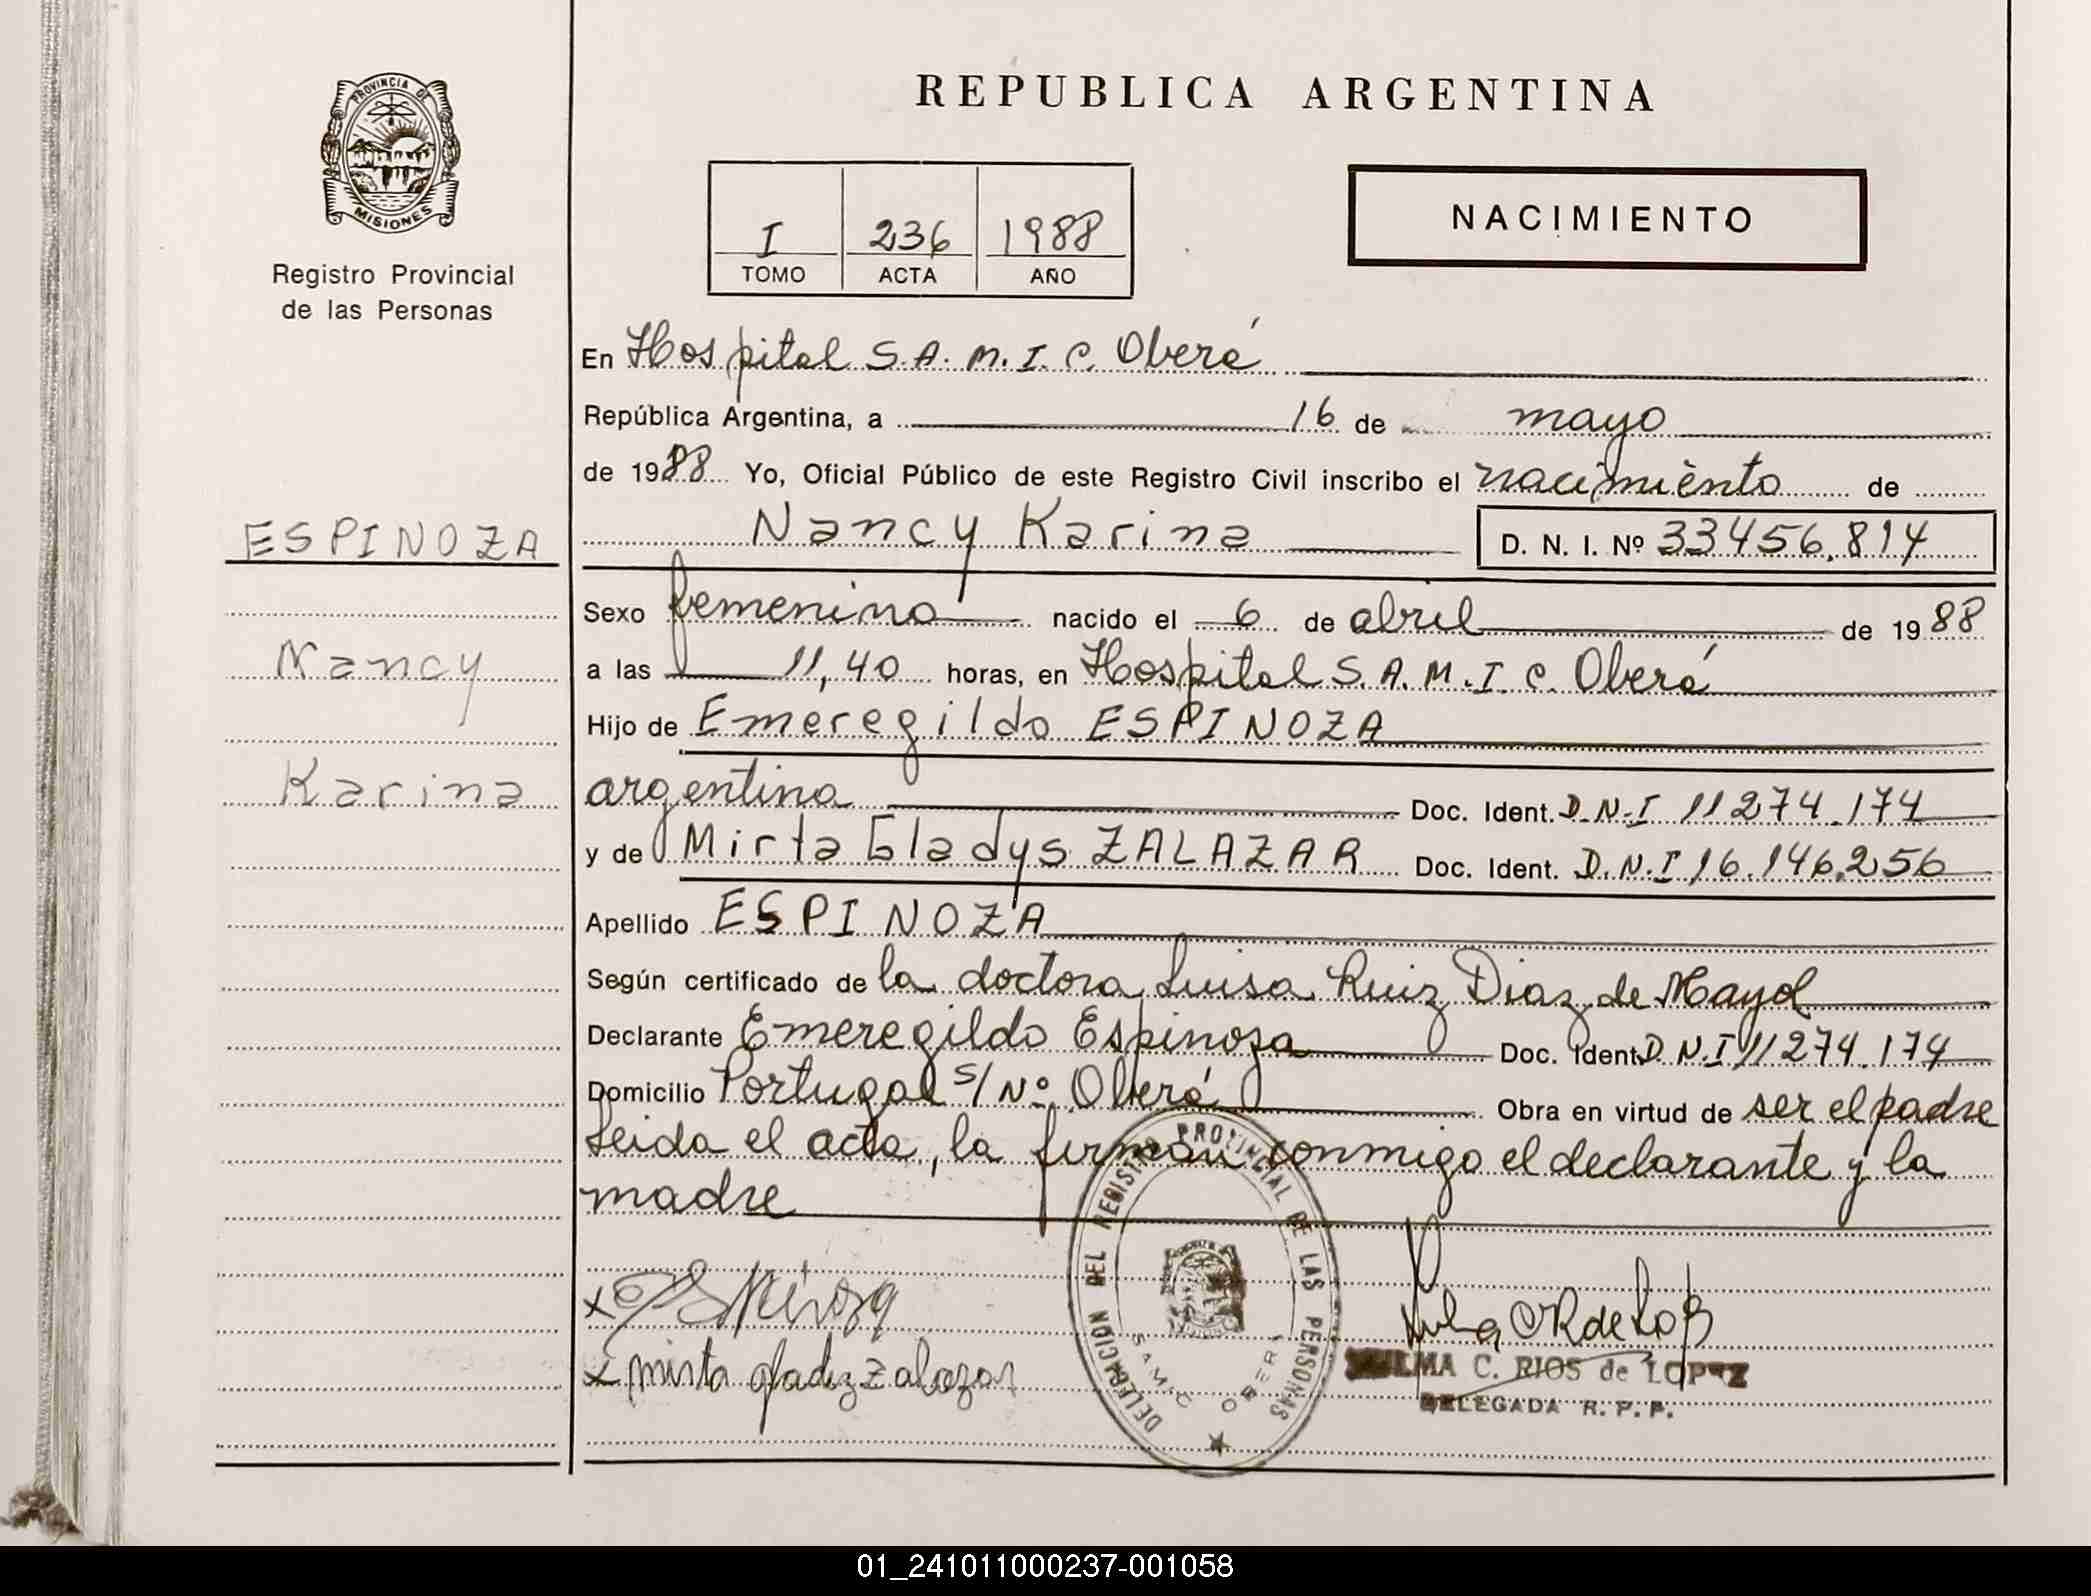 REPUBLICA ARGENTINA
PROVINCIA DE
MISIONES
Registro Provincial
de las Personas
I 236 1988
TOMO ACTA AÑO
NACIMIENTO
En Hospital S.A.M.I.C. Oberá
República Argentina, a 16 de mayo
de 1988 Yo, Oficial Público de este Registro Civil inscribo el nacimiento de
ESPINOZA
Nancy Karina D. N. I. Nº 33456.814
Sexo femenino nacido el 6 de abril de 1988
Nancy
a las 11,40 horas, en Hospital S.A.M.I.C. Oberá
Hijo de Emeregildo ESPINOZA
Karina
argentina Doc. Ident. D.N.I 11274.174
y de Mirta Gladys ZALAZAR Doc. Ident. D.N.I 16.146.256
Apellido ESPINOZA
Según certificado de la doctora Luisa Ruiz Diaz de Mayol
Declarante Emeregildo Espinoza Doc. Ident. D.N.I 11274.174
Domicilio Portugal s/Nº Oberá Obra en virtud de ser el padre
Leida el acta, la firman conmigo el declarante y la
madre
DELEGACION DEL REGISTRO PROVINCIAL DE LAS PERSONAS
SAMIC OBERA
x Espinoza
x mirta gladyz zalazar
C. RIOS de LOPEZ
DELEGADA R. P. P.
01_241011000237-001058